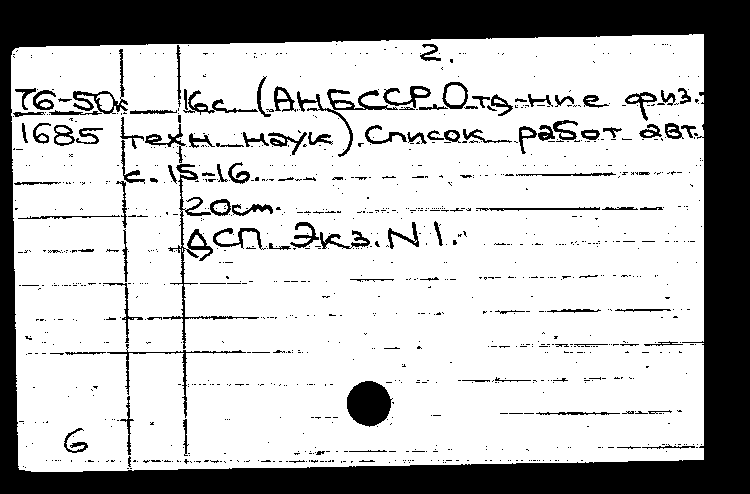 2.
76-50к 16с. (АН БССР. Отд-ние физ.-
1685 техн. наук). Список работ авт.:
с. 15-16.
20см.
ДСП. Экз. N 1.
6